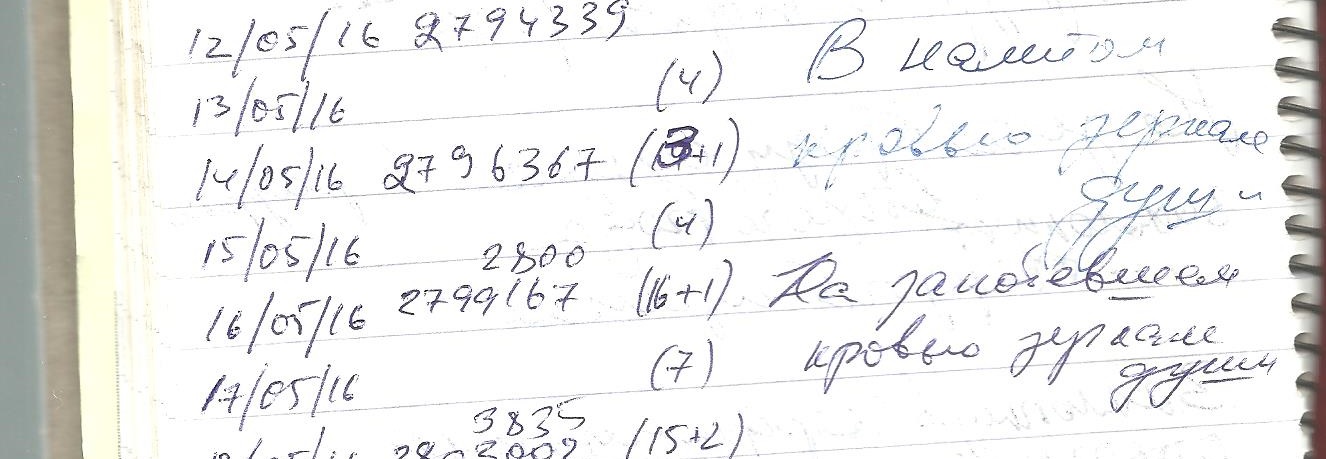 12/05/16 2794339
13/05/16 (4) В налитом
14/05/16 2796367 (3+1) кровью зеркале
15/05/16 (4) души
2800
16/05/16 2799167 (16+1) На запотевшем
17/05/16 (7) кровью зеркале
души
3835
(15+2)